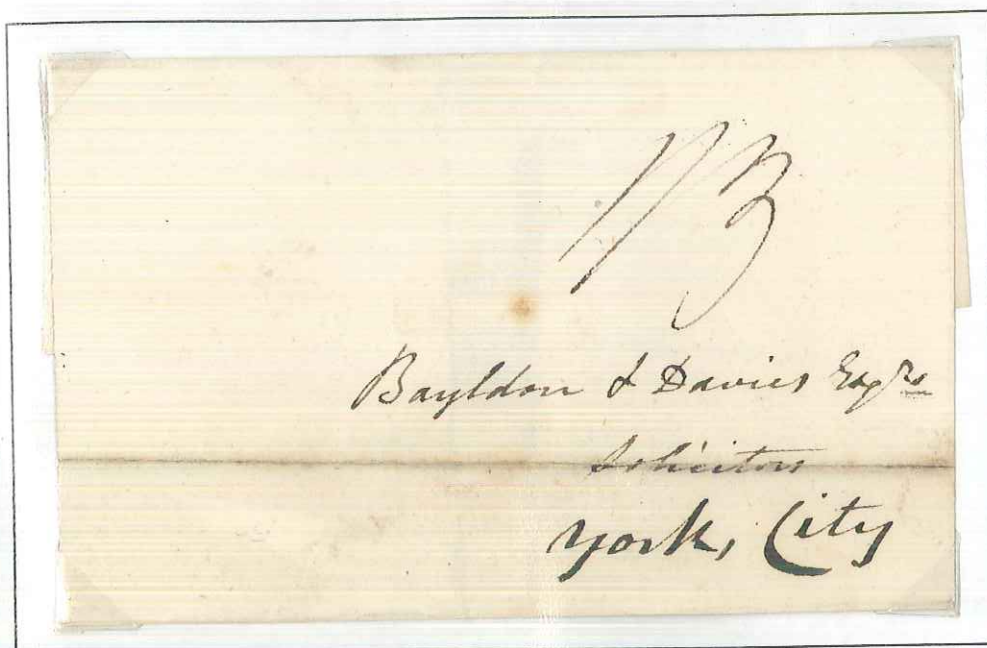 1/3
Bayldon & Davies Esqrs
Solicitors
York, City